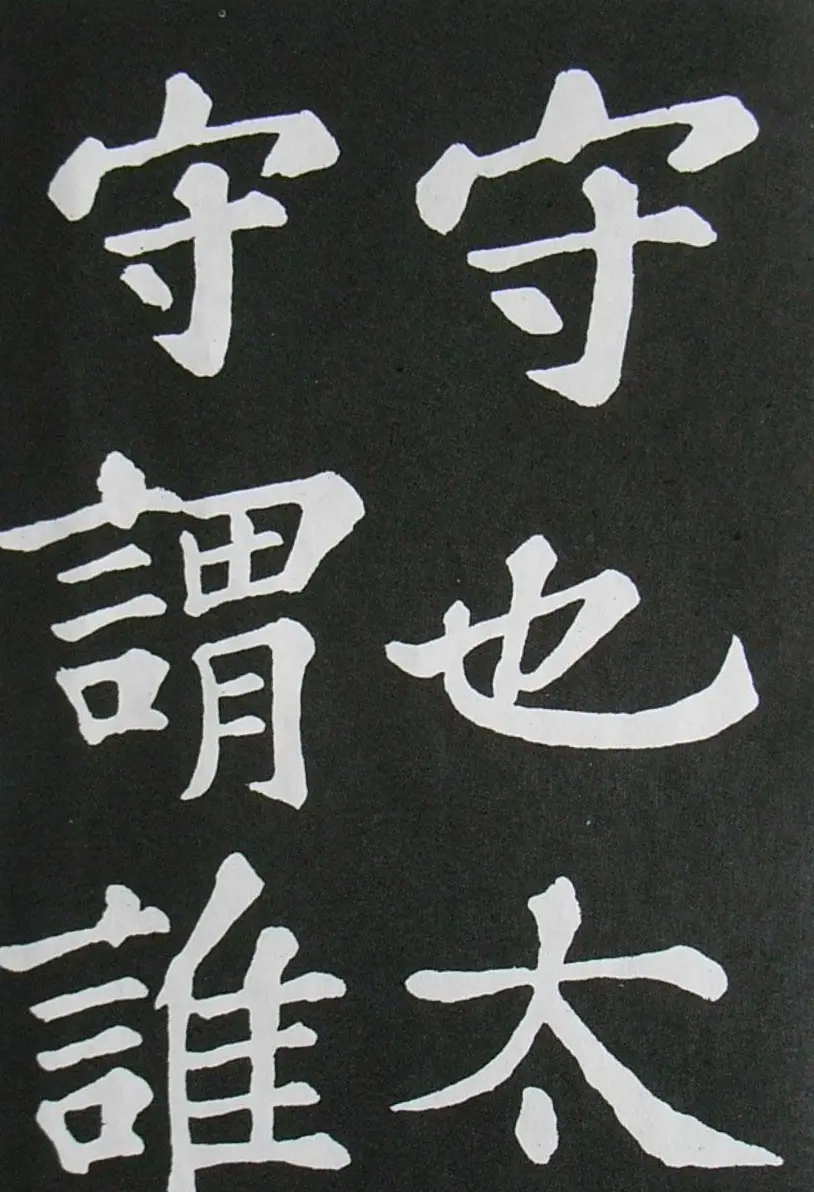 守也太
守謂誰